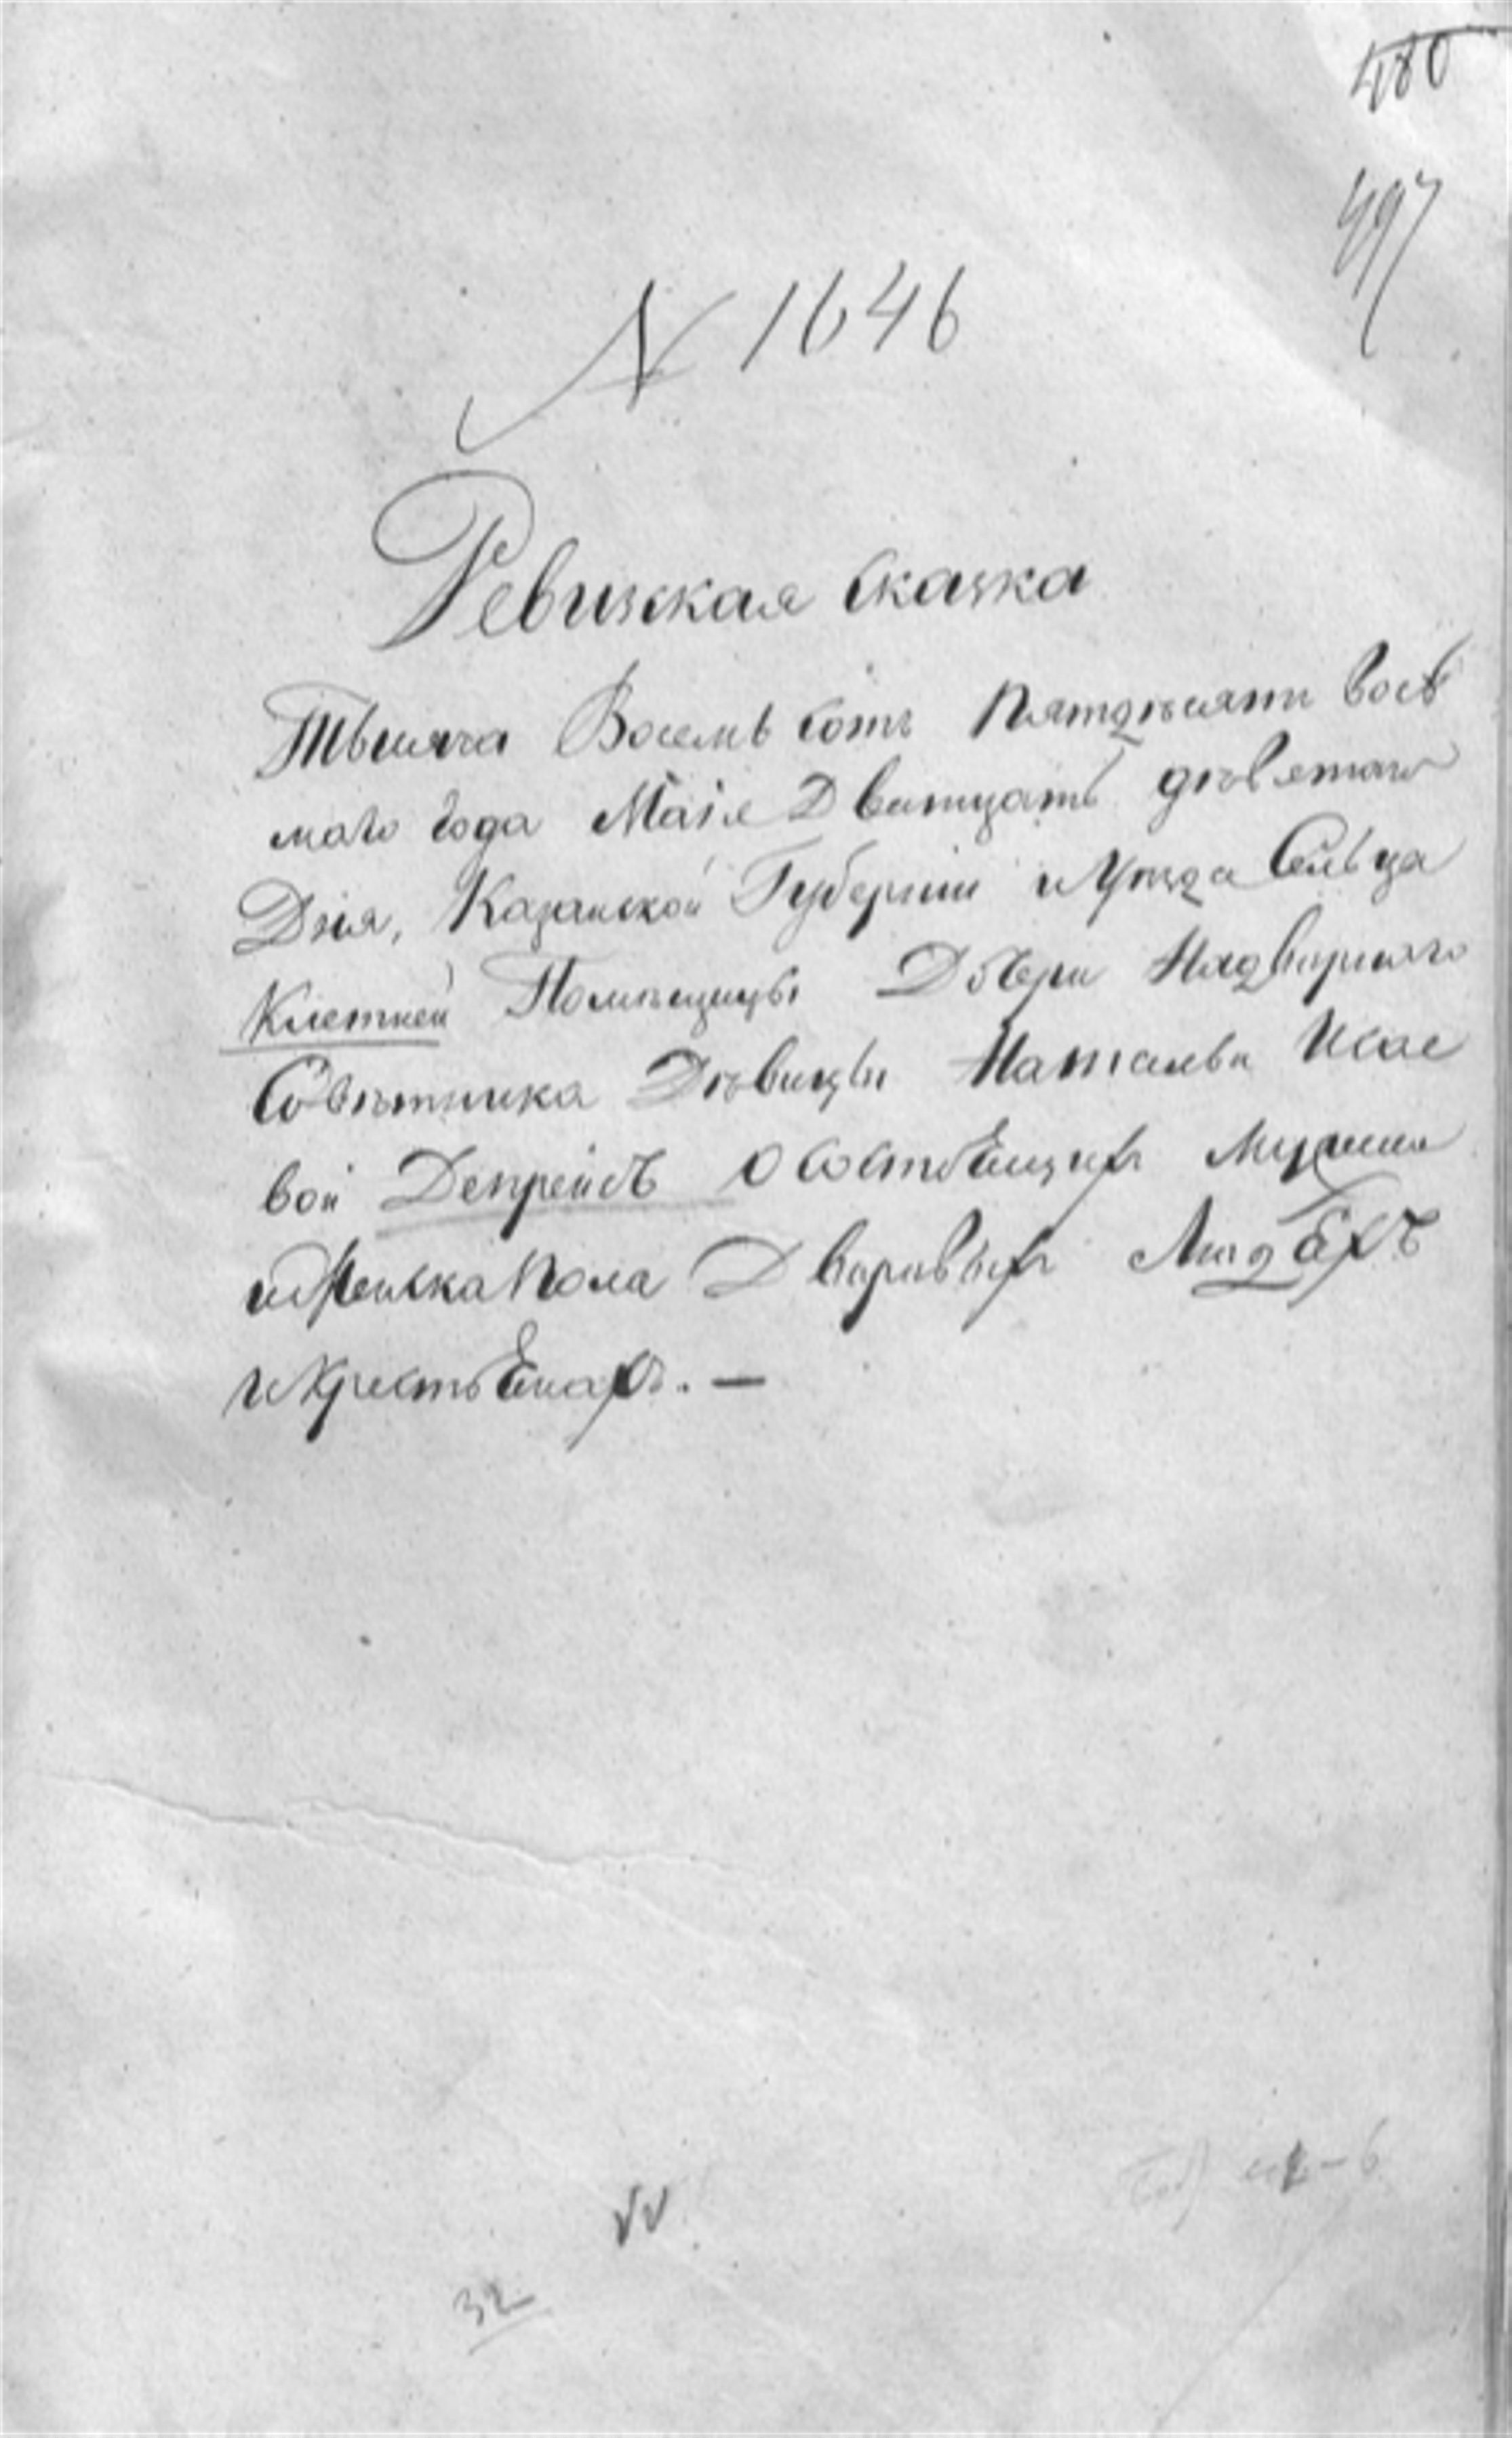 480
497
№ 1646
Ревизская сказка
Тысяча Восемь сотъ Пятдѣсятъ вось
маго года Маія Дватцать дѣветаго
Дня, Казанской Губерніи и Уѣзда Сельца
Клетней Помѣщицы Дочери Надворнаго
Совѣтника Дѣвицы Натальи Исае
вой Депрейсъ О состоЕщихъ Мужска
и Женска Пола Дворовыхъ ЛюдЕхъ
и КрестьЕнахъ. —
32